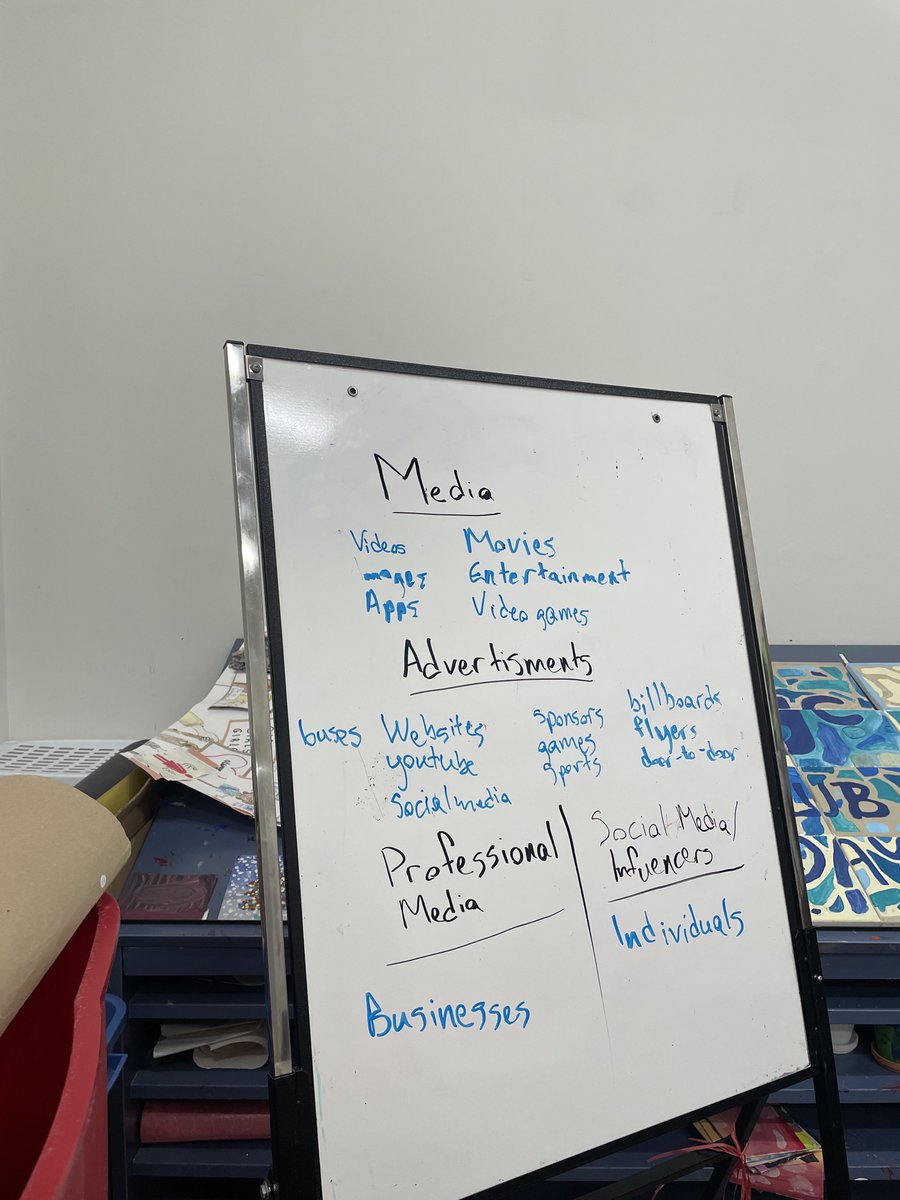 Media
Videos Movies
Images Entertainment
Apps Video games
Advertisments
buses Websites sponsors billboards
youtube games flyers
Social media sports door-to-door
Professional
Media
Businesses
Social Media/
Influencers
Individuals
GIRL
UB